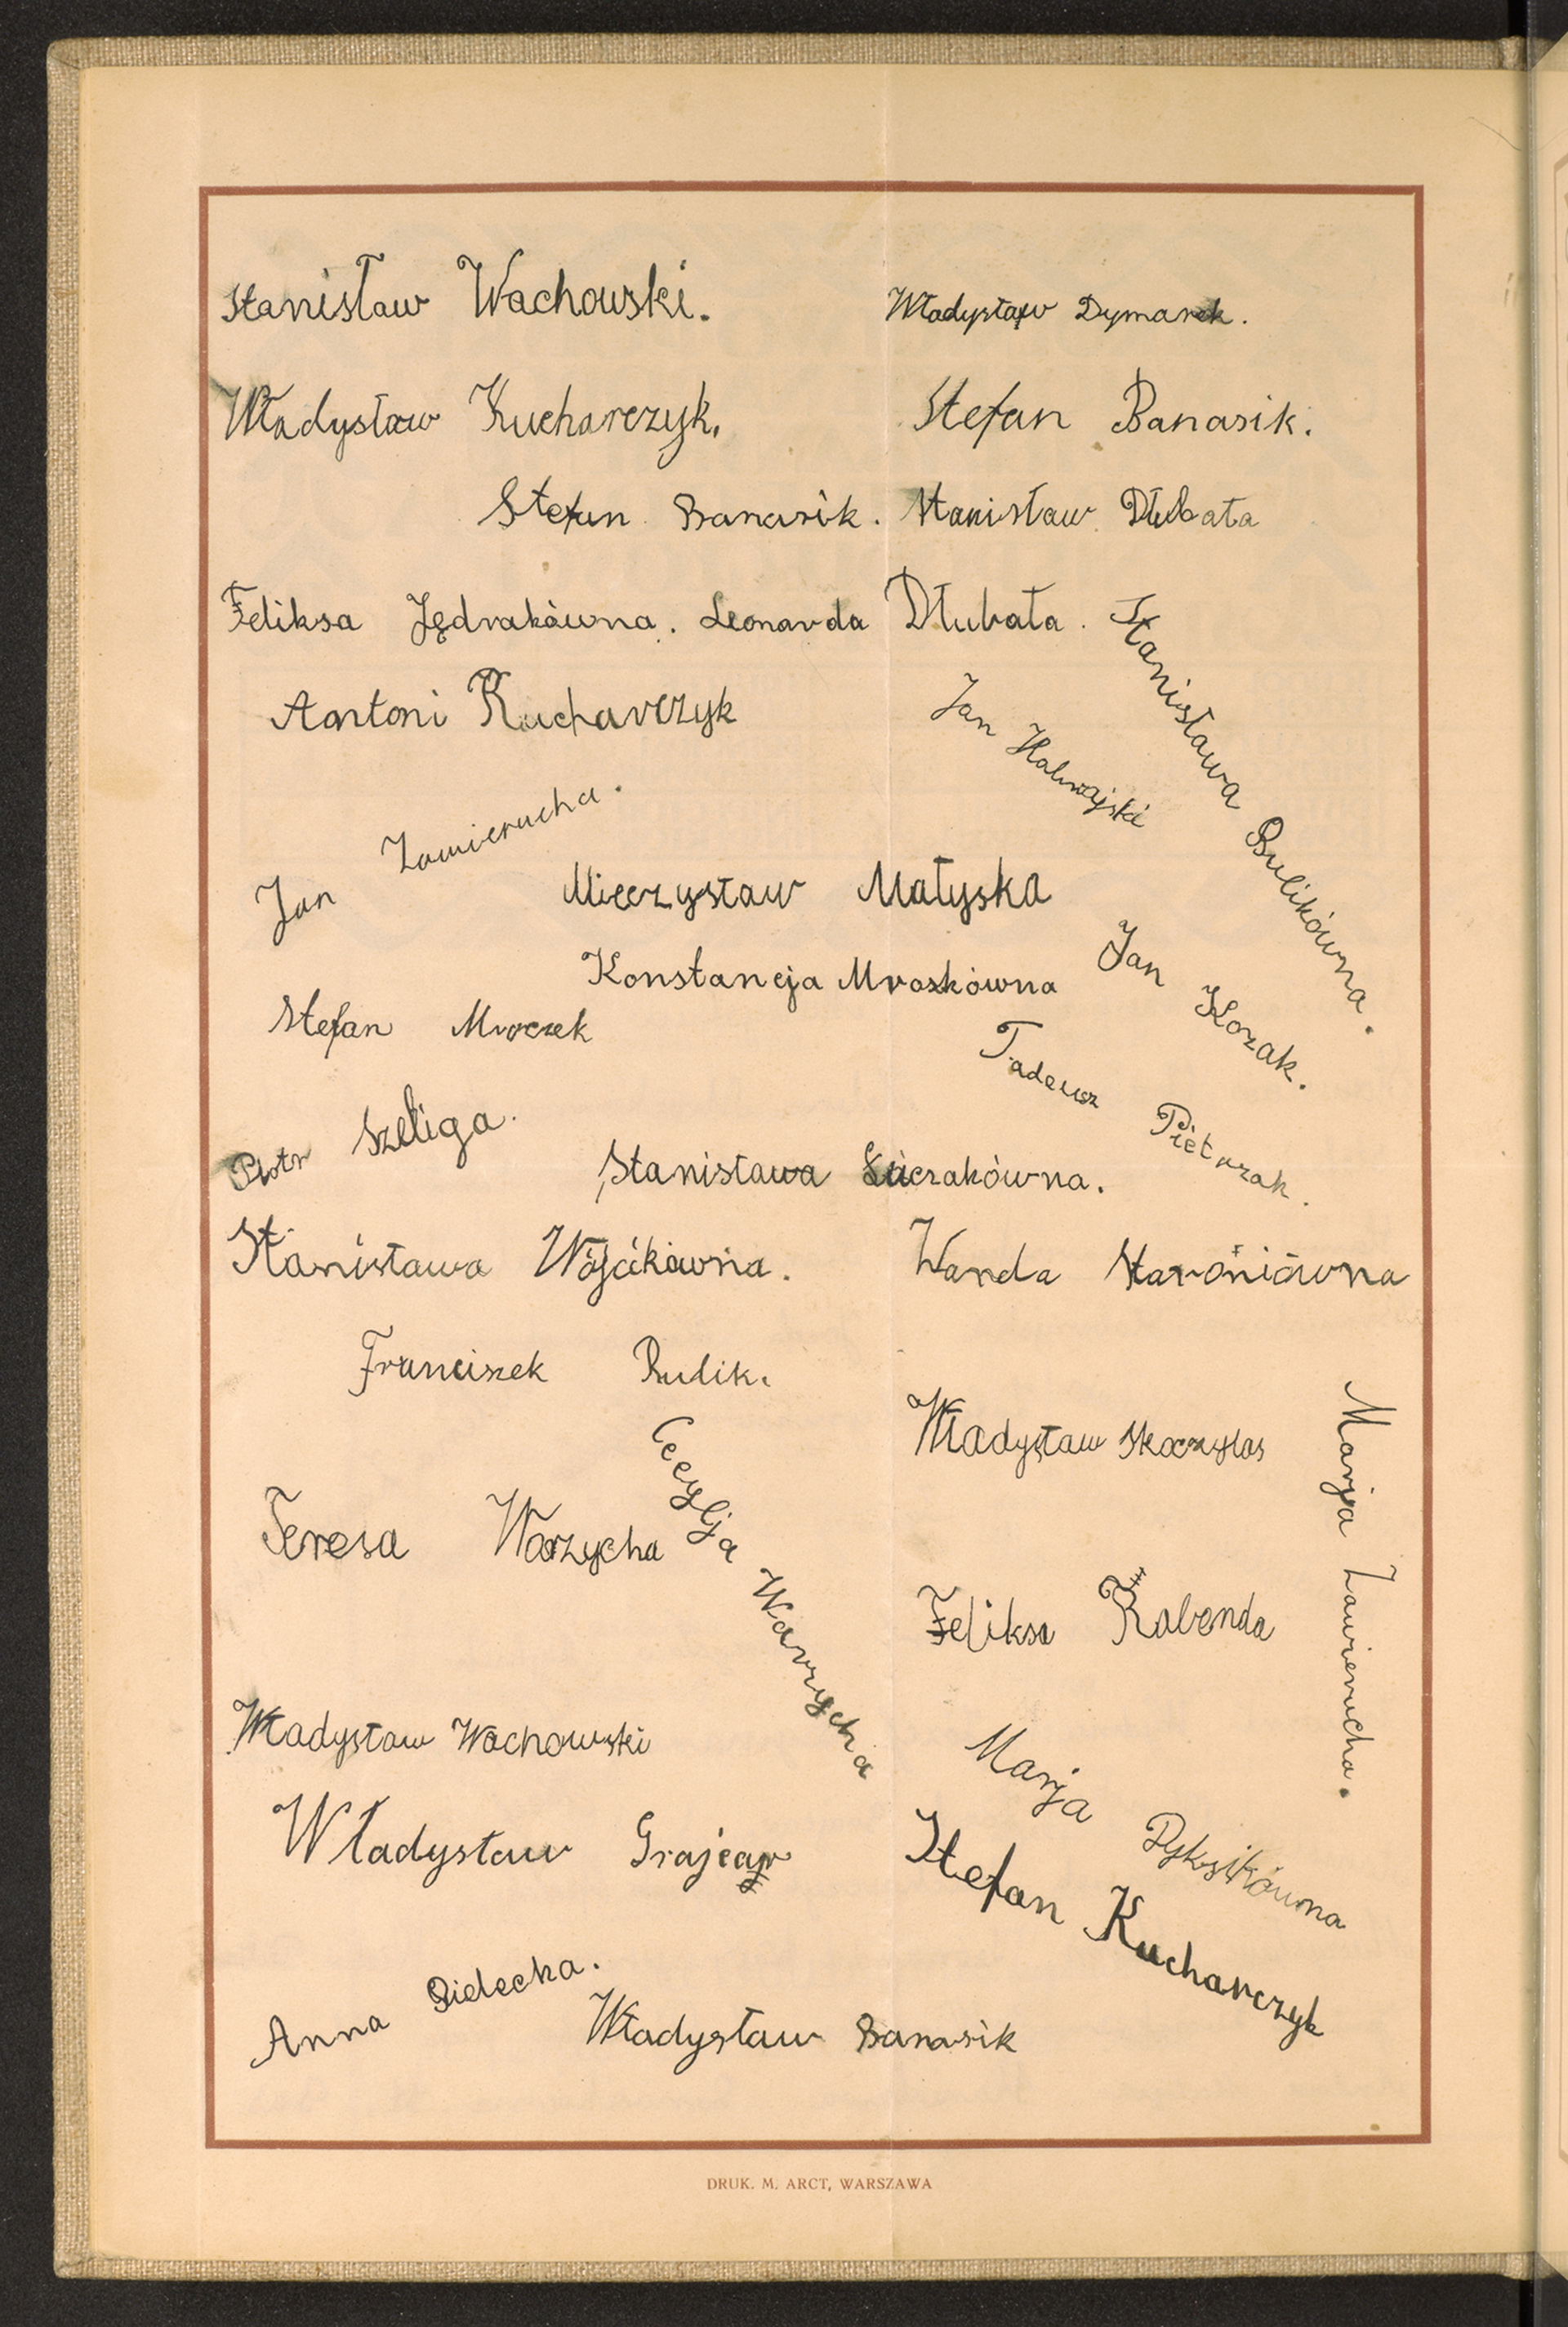 Stanisław Wachowski. Władysław Dymarek.
Władysław Kucharczyk. Stefan Banasik.
Stefan Banasik. Stanisław Dłubała
Feliksa Jędrakówna. Leonarda Dłubała.
Stanisława Bulikówna.
Antoni Kucharczyk
Jan
Jan Zawierucha.
Mieczysław Małyska
Konstancja Mroskówna
Jan Kozak.
Stefan Mroczek
Tadeusz Pietrzak.
Piotr Szeliga.
Stanisława Łuczakówna.
Stanisława Wójcikówna. Wanda Staroniówna
Franciszek Bulik.
Władysław Skoczylas
Marja Zawierucha.
Cecylja Warzycha
Teresa Warzycha
Feliksa Kabenda
Władysław Wachowski
Marja Pyksikówna
Władysław Grajcar
Stefan Kucharczyk
Anna Sielecka.
Władysław Banasik
DRUK. M. ARCT, WARSZAWA